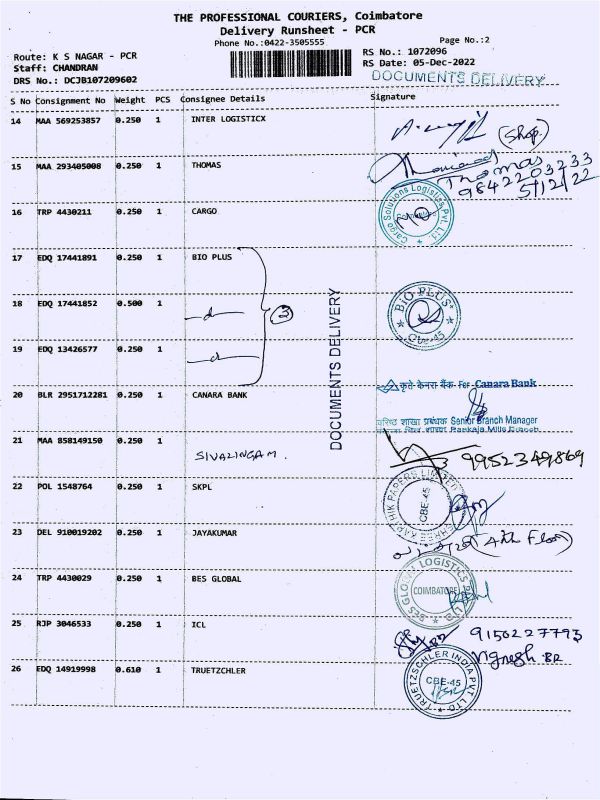 THE PROFESSIONAL COURIERS, Coimbatore
Delivery Runsheet - PCR
Phone No.:0422-3505555
Page No.:2
Route: K S NAGAR - PCR
RS No.: 1072096
Staff: CHANDRAN
RS Date: 05-Dec-2022
DRS No.: DCJB107209602
DOCUMENTS DELIVERY
S No Consignment No Weight PCS Consignee Details Signature
14 MAA 569253857 0.250 1 INTER LOGISTICX
(Shop.)
15 MAA 293405008 0.250 1 THOMAS
Thomas
9842203233
5/12/22
16 TRP 4430211 0.250 1 CARGO
Cargo Solutions Logistics Pvt. Ltd.
17 EDQ 17441891 0.250 1 BIO PLUS
18 EDQ 17441852 0.500 1
3
BIO PLUS
CBE-45
19 EDQ 13426577 0.250 1
DOCUMENTS DELIVERY
20 BLR 2951712281 0.250 1 CANARA BANK
कृते केनरा बैंक For Canara Bank
वरिष्ठ शाखा प्रबंधक Senior Branch Manager
Pankaja Mills Branch
21 MAA 858149150 0.250 1 SIVALINGAM.
9952349869
22 POL 1548764 0.250 1 SKPL
SHREE KARTHIK PAPERS LIMITED
CBE-45
23 DEL 910019202 0.250 1 JAYAKUMAR
(4th Floor)
24 TRP 4430029 0.250 1 BES GLOBAL
BES GLOBAL LOGISTICS PVT LTD
COIMBATORE
25 RJP 3046533 0.250 1 ICL
9150227793
Vignesh BR
26 EDQ 14919998 0.610 1 TRUETZCHLER
TRUETZSCHLER INDIA PVT LTD
CBE-45